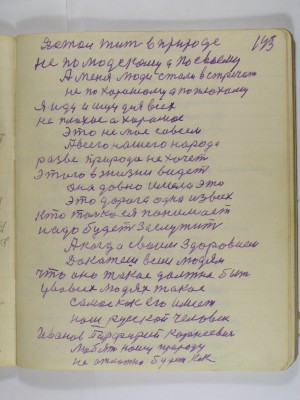 143
жить в природе
не по людскому а по своему
А меня люди стали встречат
не по хорошому а по плохому
Я иду и ищу для всех
не плохое а хорошое
Это не мое совсем
А всего нашего народа
разве природа не хочет
Этого в жизни видет
Она довно имела это
Это дорога одна из всех
Кто только ея понимает
надо будет заслужит
А когда своим здоровием
Докажем всем людям
что оно такое должно быт
у всех людях такое
самое как его имеет
наш русской человек
Иванов Порфирий Корнеевич
любит нашу природу
не
будет как